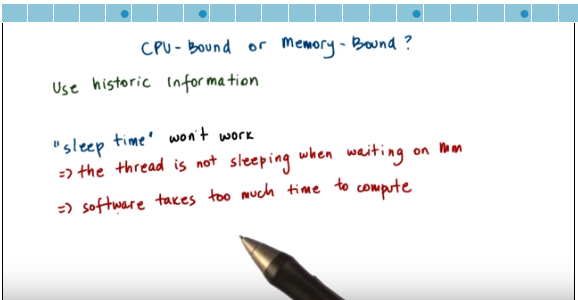 CPU-Bound or Memory-Bound?
Use historic information
"sleep time" won't work
=> the thread is not sleeping when waiting on mm
=> software takes too much time to compute